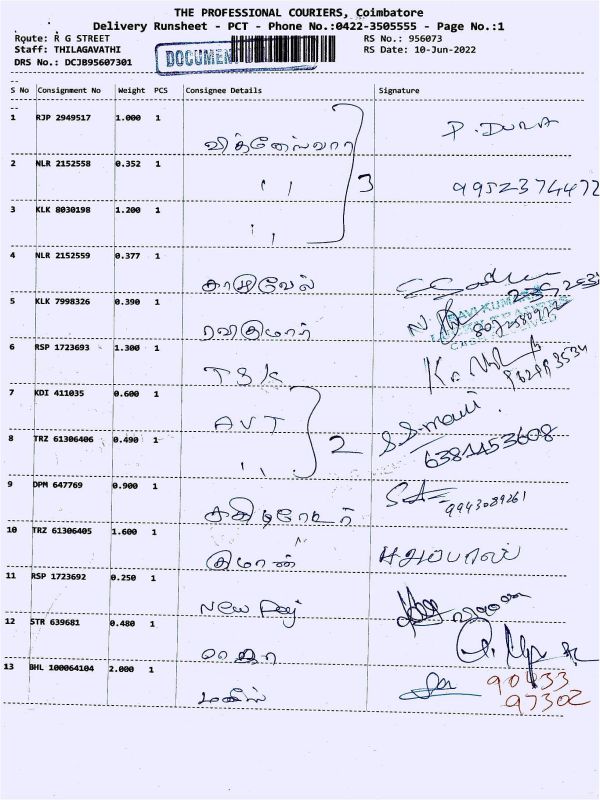 THE PROFESSIONAL COURIERS, Coimbatore
Delivery Runsheet - PCT - Phone No.:0422-3505555 - Page No.:1
Route: R G STREET RS No.: 956073
Staff: THILAGAVATHI RS Date: 10-Jun-2022
DRS No.: DCJB95607301 DOCUMEN
S No Consignment No Weight PCS Consignee Details Signature
1 RJP 2949517 1.000 1
விக்னேஸ்வரா P. DURA
2 NLR 2152558 0.352 1
,, 3 9952374472
3 KLK 8030198 1.200 1
,,
4 NLR 2152559 0.377 1
5 KLK 7998326 0.390 1
ரவிகுமார்
6 RSP 1723693 1.300 1
TSK
7 KDI 411035 0.600 1
AVT
8 TRZ 61306406 0.490 1
,, 2 6381153608
9 DPM 647769 0.900 1
9943089261
10 TRZ 61306405 1.600 1
குமரன்
11 RSP 1723692 0.250 1
New
12 STR 639681 0.480 1
ராஜா
13 BHL 100064104 2.000 1 90433
97302